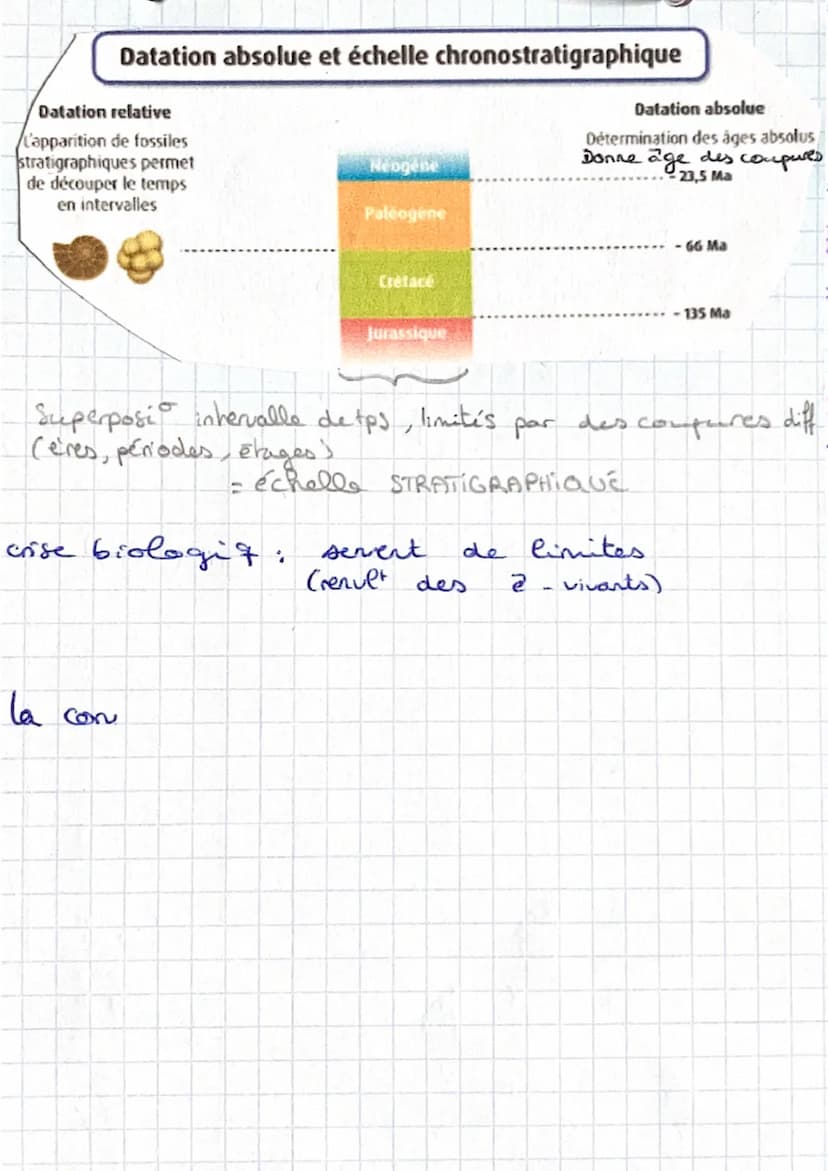 Datation absolue et échelle chronostratigraphique
Datation relative
L'apparition de fossiles
stratigraphiques permet
de découper le temps
en intervalles
Datation absolue
Détermination des âges absolus
Donne âge des coupures
Néogène
- 23,5 Ma
Paléogène
- 66 Ma
Crétacé
- 135 Ma
Jurassique
Superposi° intervalle de tps, limités par des coupures diff
(ères, périodes, étages)
= échelle STRATIGRAPHIQUE
crise biologiq : servent de limites
(renvlt des ê - vivants)
la con